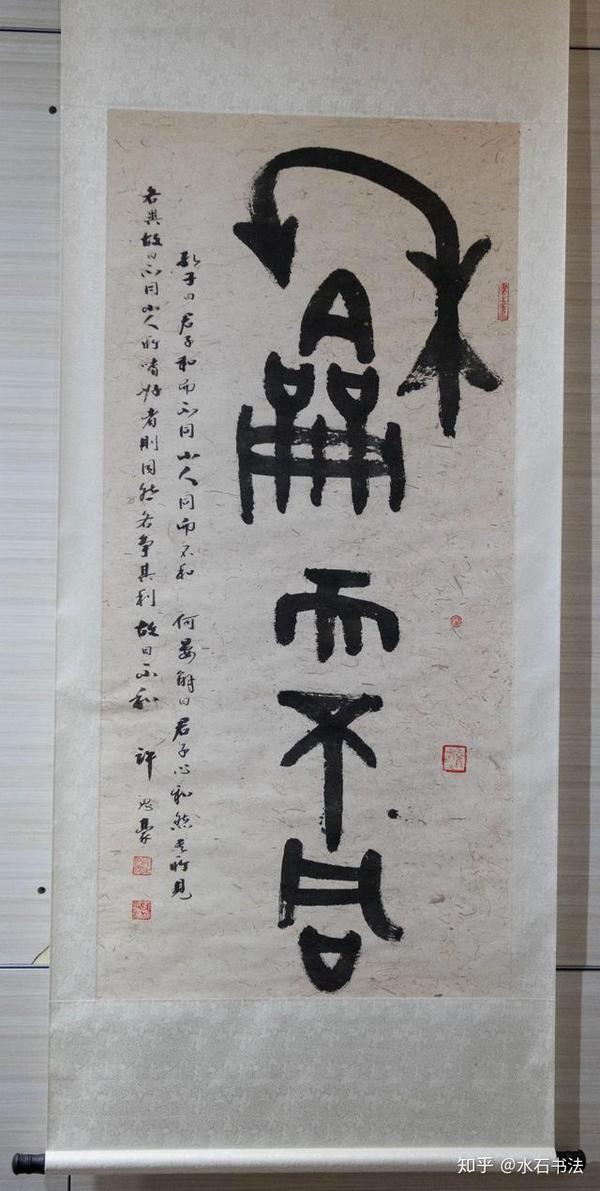 龢而不同
孔子曰君子和而不同小人同而不和 何晏解曰君子心和然其所見
各異故曰不同小人所嗜好者則同然各爭其利故曰不和 許思豪
知乎 @水石书法